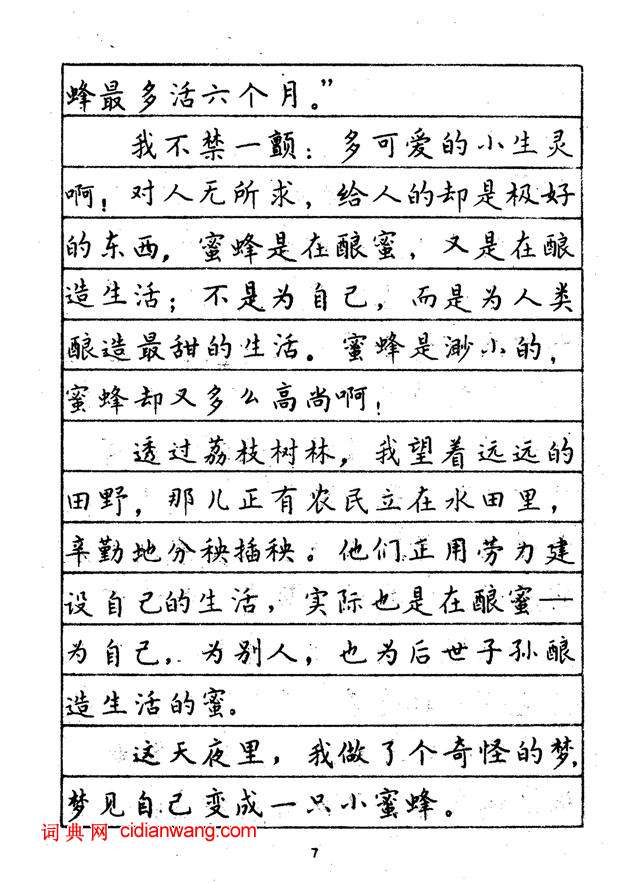 蜂最多活六个月。”
我不禁一颤：多可爱的小生灵
啊！对人无所求，给人的却是极好
的东西，蜜蜂是在酿蜜，又是在酿
造生活；不是为自己，而是为人类
酿造最甜的生活。蜜蜂是渺小的，
蜜蜂却又多么高尚啊！
透过荔枝树林，我望着远远的
田野，那儿正有农民立在水田里，
辛勤地分秧插秧。他们正用劳力建
设自己的生活，实际也是在酿蜜——
为自己，为别人，也为后世子孙酿
造生活的蜜。
这天夜里，我做了个奇怪的梦，
梦见自己变成一只小蜜蜂。
词典网 cidianwang.com
7